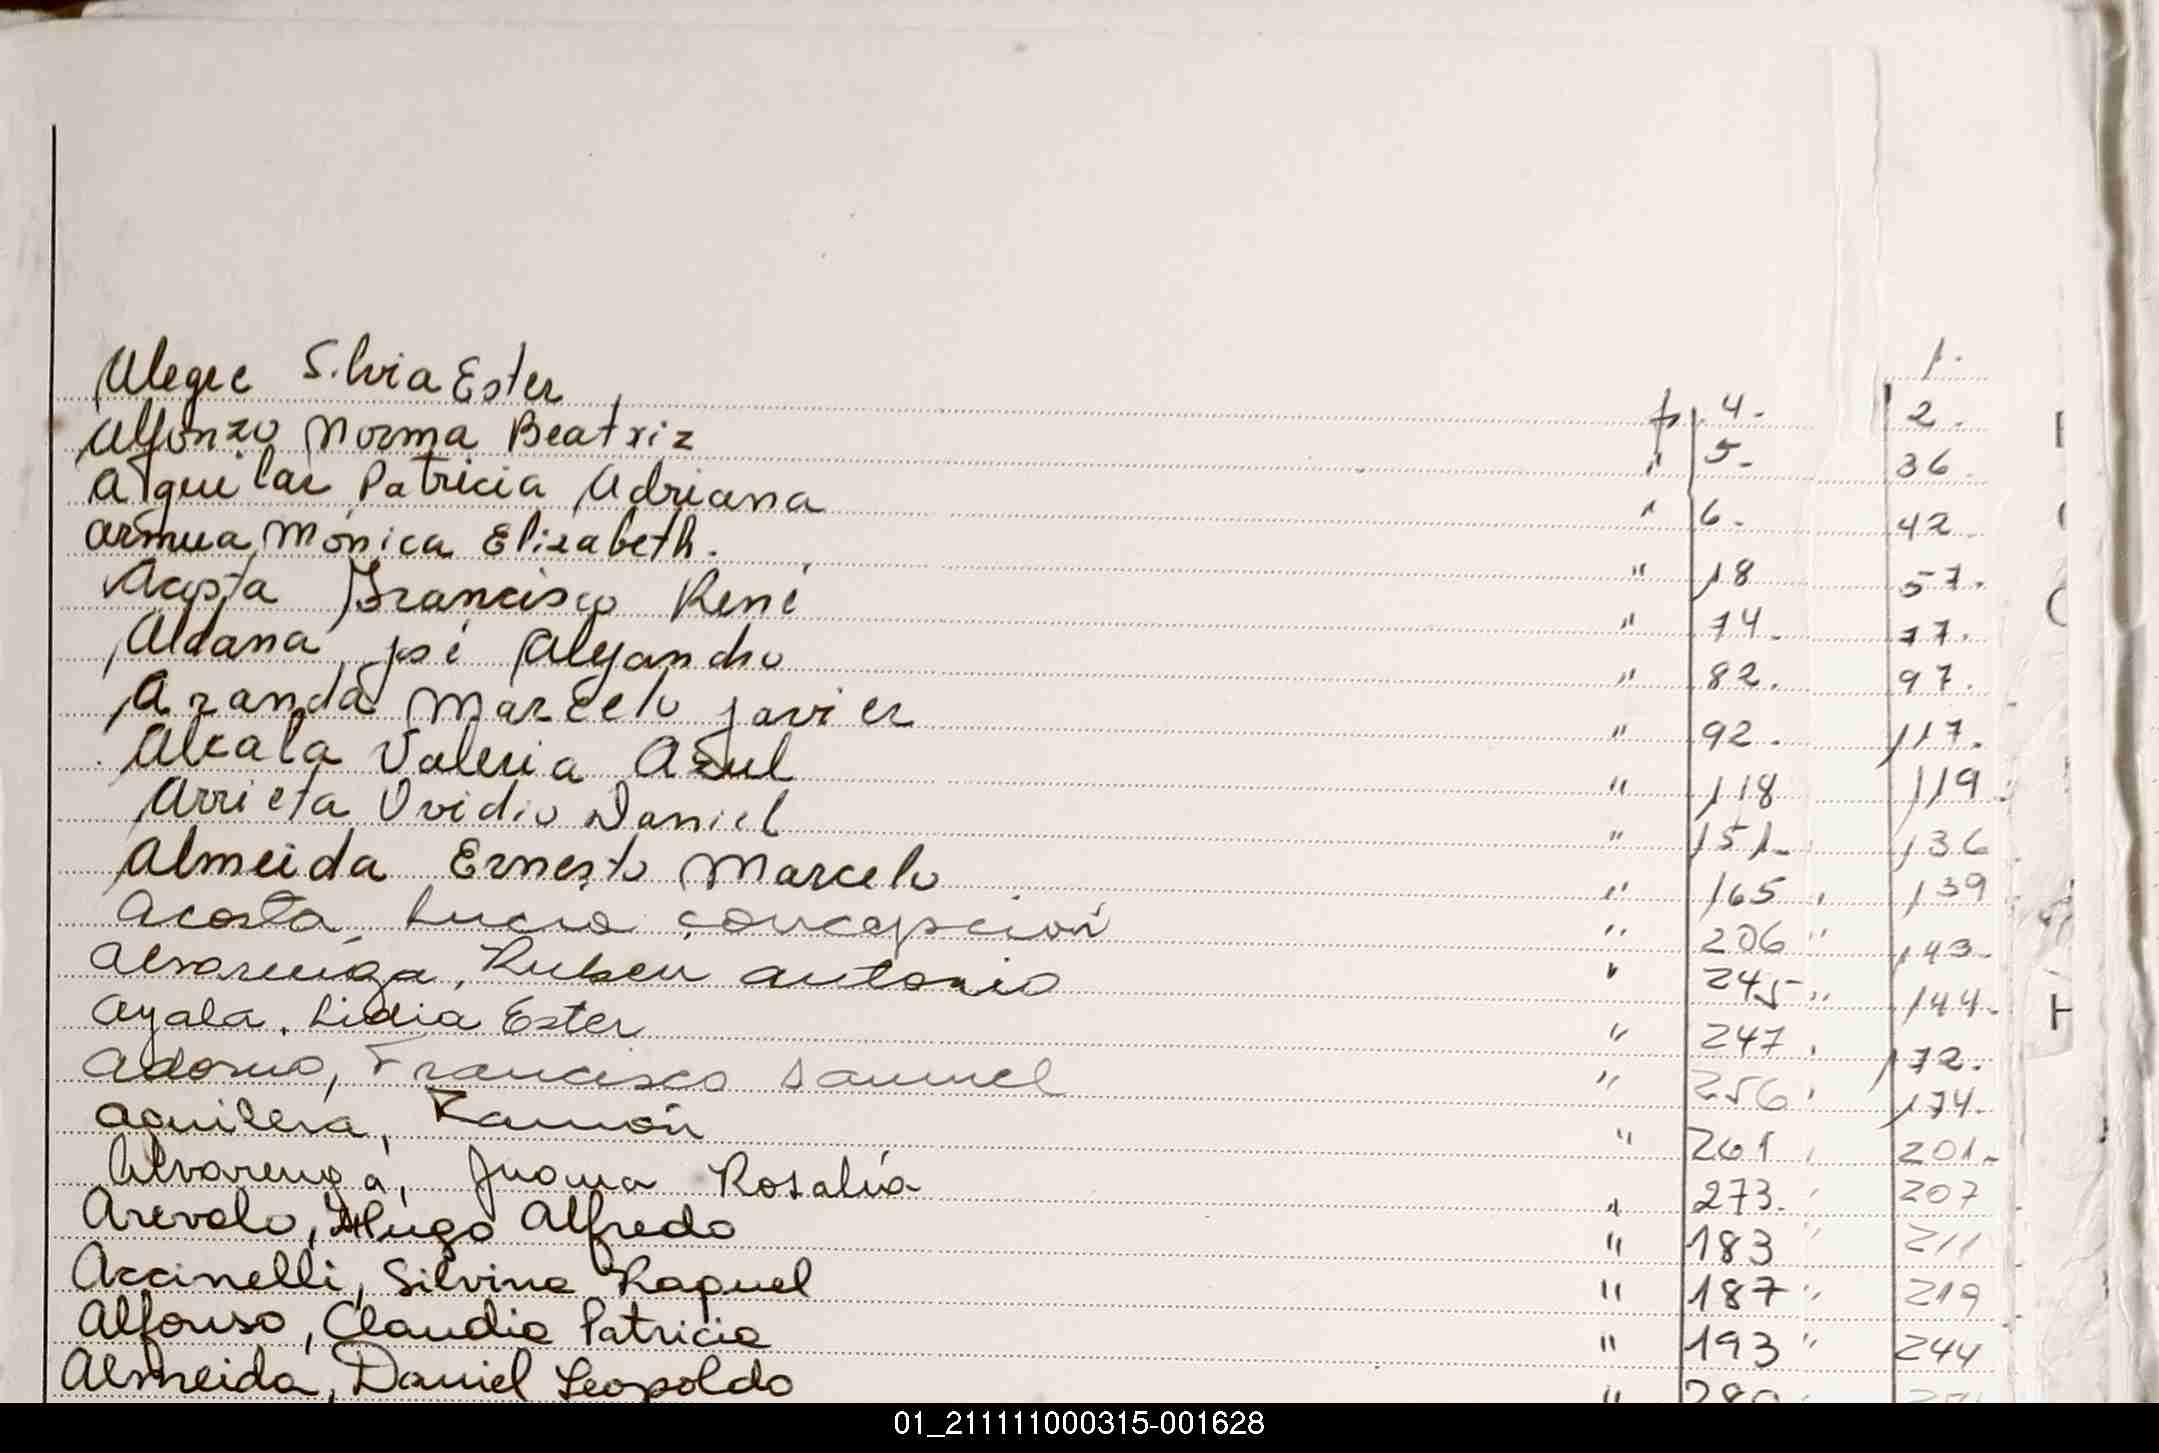 1.
Alegre Silvia Ester f 4. 2.
Alfonzo Norma Beatriz " 5. 36.
Aguilar Patricia Adriana " 6. 42
Armua Mónica Elizabeth. " 18 57.
Acosta Francisco René " 74. 77.
Aldana José Alejandro " 82. 97.
Aranda Marcelo Javier " 92. 117.
Alcala Valeria Azul " 118 119
Arrieta Ovidio Daniel " 151. 136
Almeida Ernesto Marcelo " 165 139
Acosta, Lucia Concepción " 206 " 143.
Alvarenga, Ruben Antonio " 245 " 144.
Ayala, Lidia Ester " 247 172.
Adorno, Francisco Samuel " 256 174.
Aguilera, Ramón " 261 201.
Alvarenga, Juana Rosalía " 273. 207
Arevalo, Hugo Alfredo " 183 211
Accinelli, Silvina Raquel " 187 " 219
Alfonso, Claudia Patricia " 193 " 244
Almeida, Daniel Leopoldo "
H
01_211111000315-001628